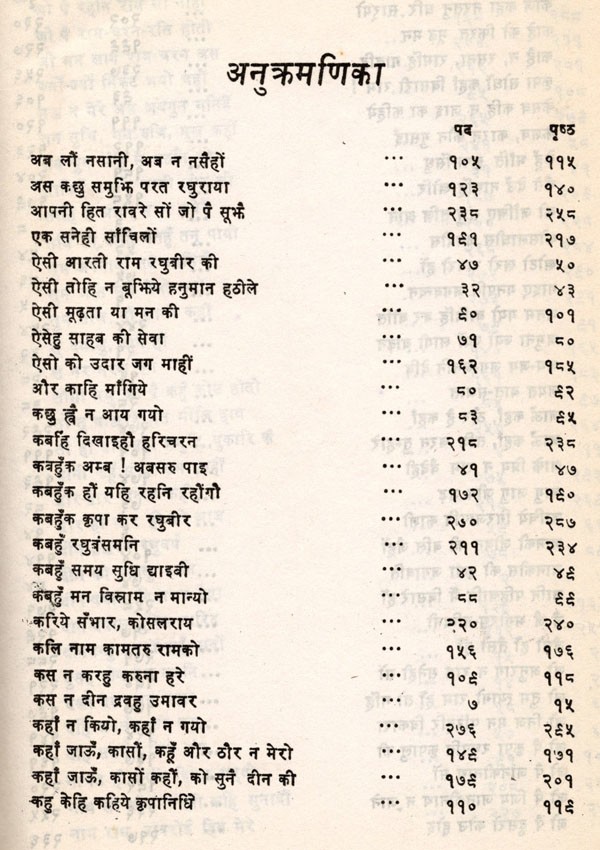 अनुक्रमणिका
पद पृष्ठ
अब लौं नसानी, अब न नसैहों ... १०५ ११५
अस कछु समुझि परत रघुराया ... १२३ १४०
आपनी हित रावरे सों जो पै सूझै ... २३८ २५८
एक सनेही साँचिलों ... १९१ २१७
ऐसी आरती राम रघुबीर की ... ४७ ५०
ऐसी तोहि न बूझिये हनुमान हठीले ... ३२ ४३
ऐसी मूढ़ता या मन की ... ९० १०१
ऐसेहु साहब की सेवा ... ७१ ८०
ऐसो को उदार जग माहीं ... १६२ १८५
और काहि माँगिये ... ८० ९२
कछु ह्वै न आय गयो ... ८३ ९५
कबहिं दिखाइहौ हरिचरन ... २१८ २३८
कबहुँक अम्ब ! अबसरु पाइ ... ४१ ४७
कबहुँक हौं यहि रहनि रहौंगौ ... १७२ १९०
कबहुँक कृपा कर रघुबीर ... २७० २८७
कबहुँ रघुवंसमनि ... २११ २३४
कबहुँ समय सुधि द्याइबी ... ४२ ४९
कबहुँ मन विस्राम न मान्यो ... ८८ ९९
करिये सँभार, कोसलराय ... २२० २४०
कलि नाम कामतरु रामको ... १५६ १७६
कस न करहु करुना हरे ... १०९ ११८
कस न दीन द्रवहु उमावर ... ७ १५
कहाँ न कियो, कहाँ न गयो ... २७६ २९५
कहाँ जाऊँ, कासों, कहूँ और ठौर न मेरो ... १४९ १७१
कहाँ जाऊँ, कासों कहौं, को सुनै दीन की ... १७९ २०१
कहु केहि कहिये कृपानिधे ... ११० ११९